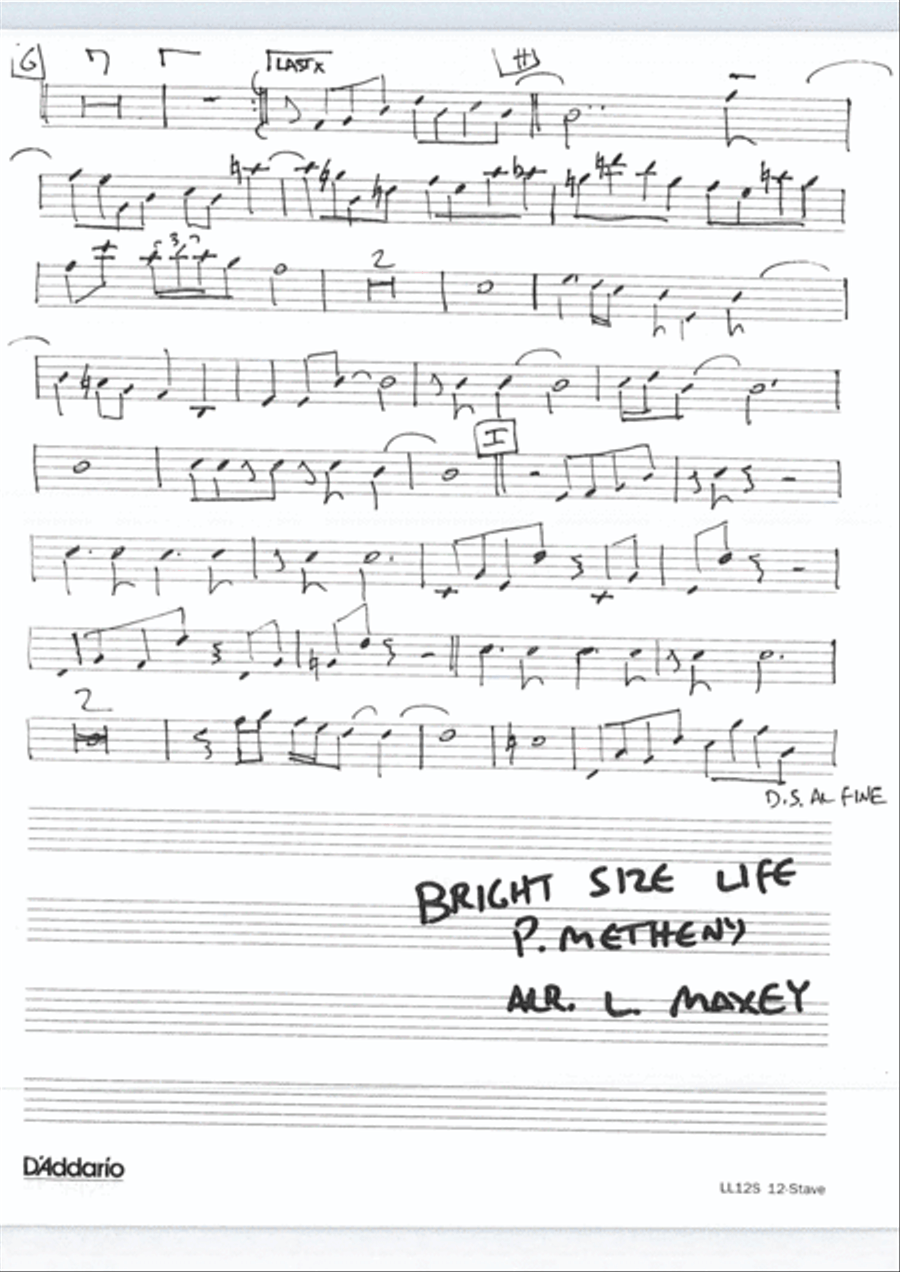 G 7 LAST X H
3
2
I
2
D.S. AL FINE
BRIGHT SIZE LIFE
P. METHENY
ARR. L. MAXEY
D'Addario
LL12S 12-Stave